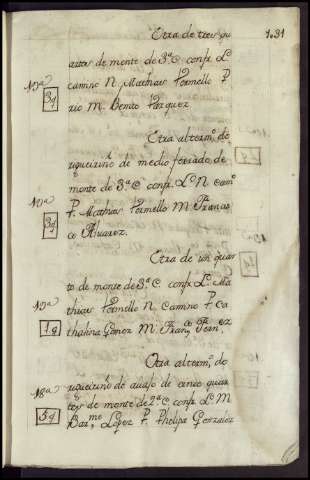 Otra de tres qu
1.31
artos de monte de 3.ª C confr. L.
camino N. Mathias Tormello P.
rio M. Benito Vazquez
3q
Otra al term.º de
de medio ferrado de
monte de 3.ª C confr. L. N. cam.º
P. Mathias Tormello M. Franco
co Alvarez.
3q
Otra de un quar
to de monte de 3.ª C confr. L. Ma
thias Tormello N. Camino P. Ca
thalina Gomez M. Fran.co Fern.ez
1q
Otra al term.º de
de cinco quar
tos de monte de 2.ª C confr. L. M.
Bar.me Lopez P. Phelipa Gonzalez
18ª
5q